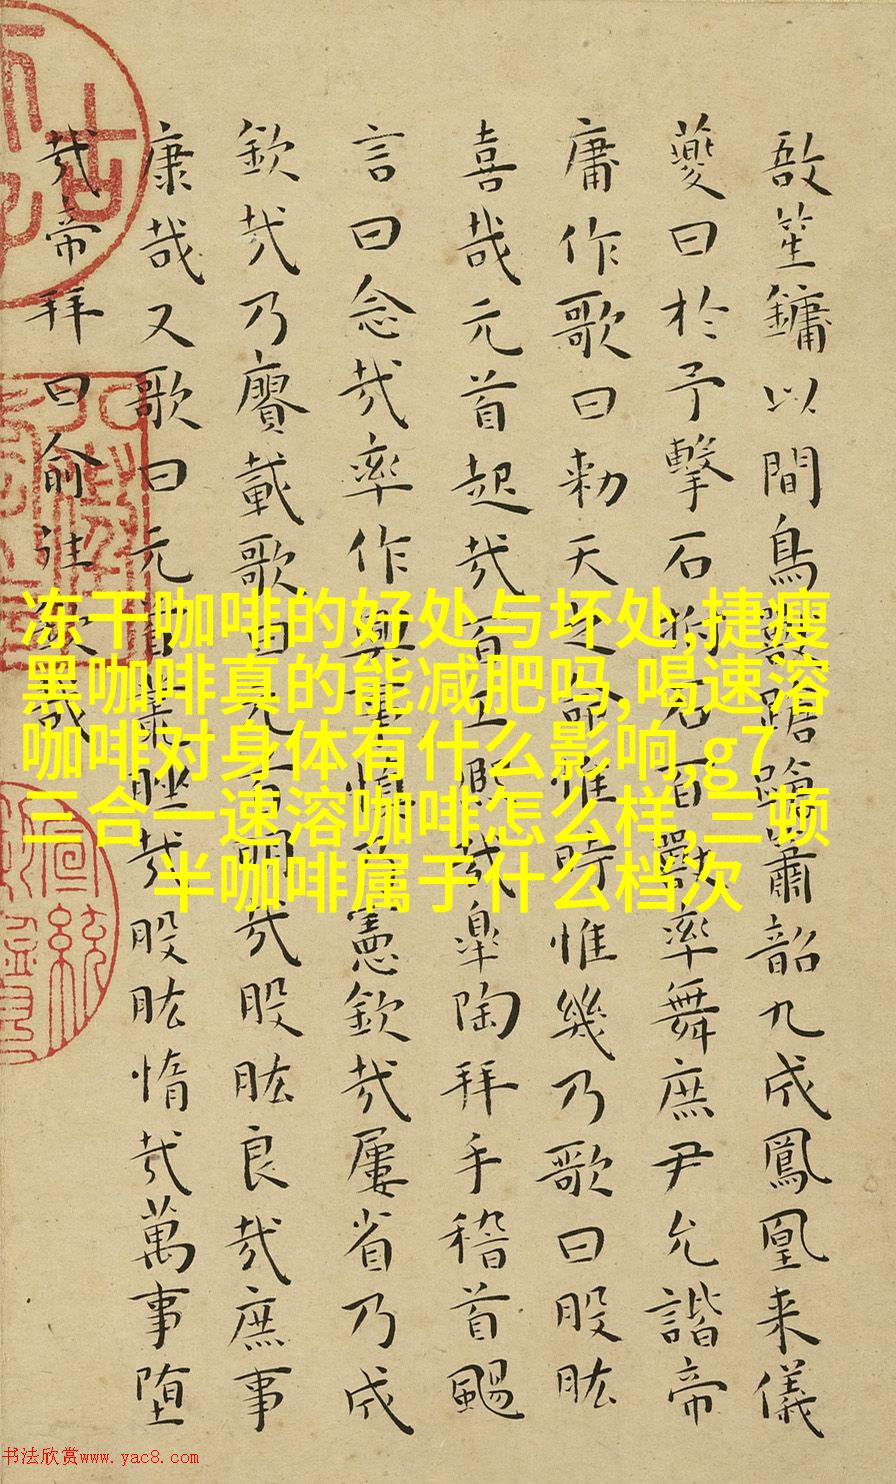 敔笙鏞以間鳥獸蹌蹌簫韶九成鳳凰来儀
夔曰於予擊石拊石百獸率舞庶尹允諧帝
庸作歌曰勑天之命惟時惟幾乃歌曰股肱
喜哉元首起哉百工熙哉皐陶拜手稽首颺
言曰念哉率作興事慎乃憲欽哉屢省乃成
欽哉乃賡載歌曰元首明哉股肱良哉庶事
康哉又歌曰元首叢脞哉股肱惰哉萬事堕
哉帝拜曰俞往欽哉
冻干咖啡的好处与坏处,捷瘦
黑咖啡真的能减肥吗,喝速溶
咖啡对身体有什么影响,g7
三合一速溶咖啡怎么样,三顿
半咖啡属于什么档次
书法欣赏www.yac8.com